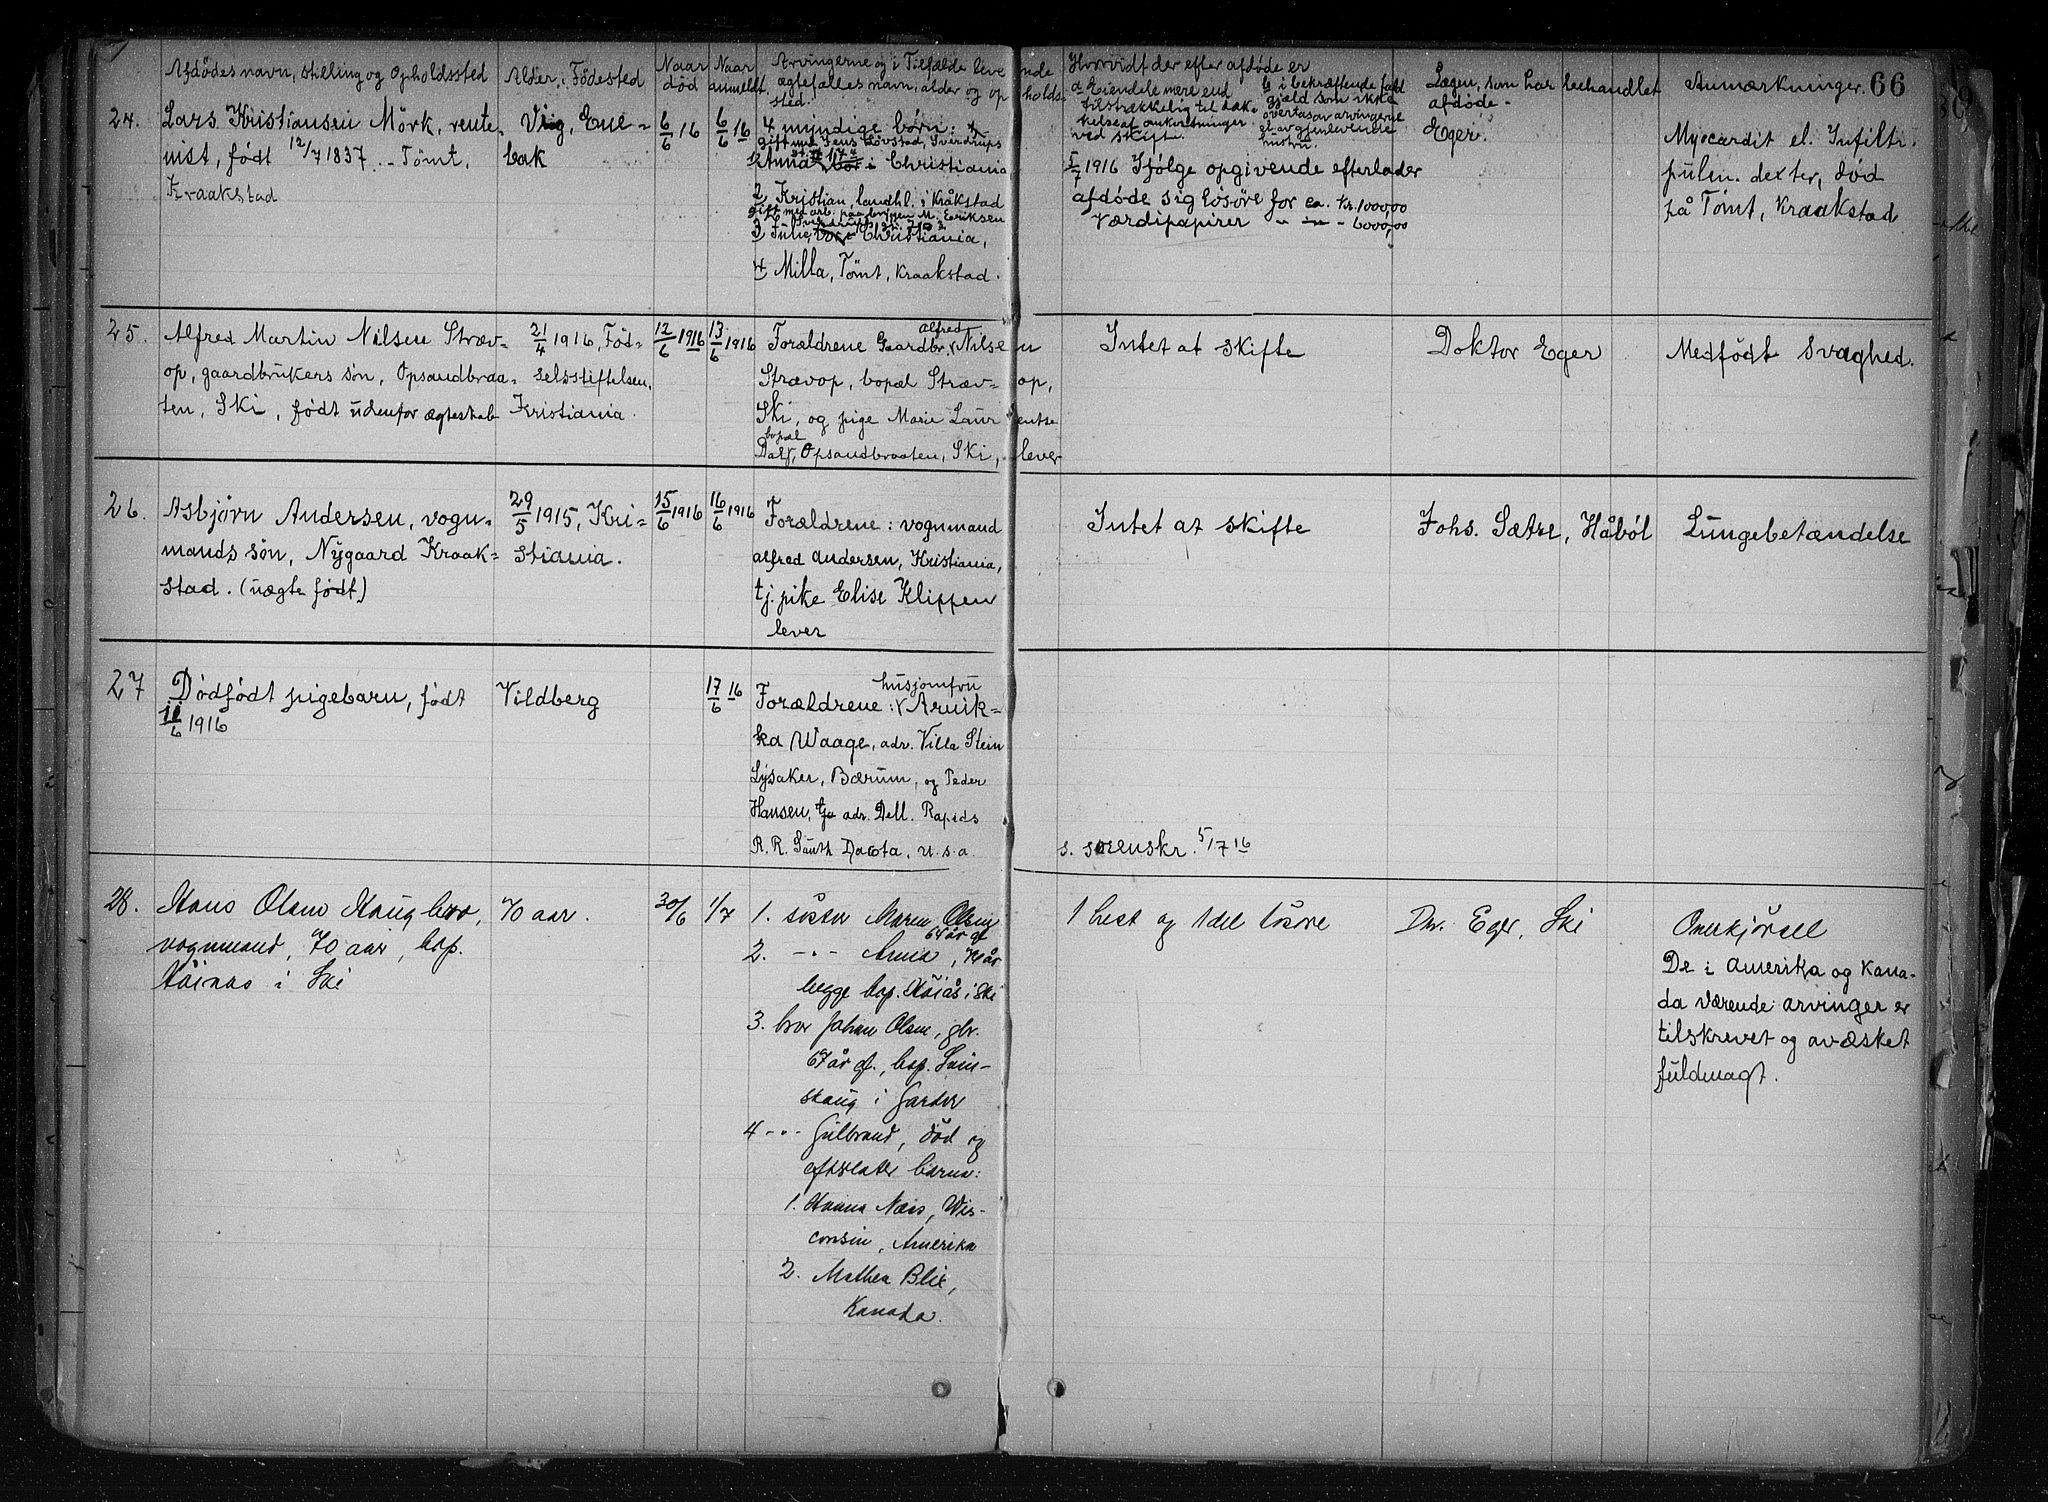 Afdødes navn, stilling og Opholdssted
Alder, Fødested
Naar død
Naar anmeldt
Arvingerne og i Tilfælde leve
nde
ægtefælles navn, alder og op
holds-
sted.
Hvorvidt der efter afdøde er
a Eiendele mere end
tilstrækkelig til dæk-
kelse af omkostninger
ved skifte.
b i bekræftende fald
gjæld som ikke
overtas av arvingerne
el. av gjenlevende
hustru.
Lægen, som har behandlet
afdøde.
Anmærkninger.
66
24.
Lars Kristiansen Mörk, rente-
nist, født 12/7 1837. - Tömt,
Kraakstad
Vig, Ene-
bak
6/6 16
6/6 16
4 myndige børn:
gift med Jens Lövstad, Sverdrups
1 Anna, i Christiania
2 Kristian, landhl. i Kråkstad
gift med arb. paa bryggen M. Eeriksen
3 Julie, Christiania,
4 Milla, Tömt, Kraakstad.
5/7 1916 Ifölge opgivende efterlader
afdøde sig lösöre for ca. kr. 1000,00
værdipapirer " - " - 6000,00
Eger.
Myocardit el. Infiltr.
pulm. dexter, død
på Tömt, Kraakstad
25.
Alfred Martin Nilsen Stræv-
op, gaardbrukers søn, Opsandbraa-
ten, Ski, født udenfor ægteskab
21/4 1916, Fød-
selsstiftelsen,
Kristiania.
12/6 1916
13/6 1916
alfred
Forældrene Gaardbr. Nilsen
Strævop, bopæl Stræv-op,
Ski, og pige Marie Laurentse
bopæl
Dal, Opsandbraaten, Ski, lever
Intet at skifte
Doktor Eger
Medfödt svaghed.
26.
Asbjørn Andersen, vogn-
mands sön, Nygaard Kraak-
stad. (uægte født)
29/5 1915, Kri-
stiania.
15/6 1916
16/6 1916
Forældrene: vognmand
alfred andersen, Kristiania,
tj. pike Elise Klippen
lever
Intet at skifte
Johs. Sætre, Håböl
Lungebetændelse
27
Dødfödt pigebarn, født
/6 1916
Vildberg
17/6 16
husjomfru
Forældrene: Arnik-
ka Waage, adr. Villa Stein
Lysaker, Bærum, og Peder
Hansen, adr. Dell. Rapids
R. R. South Dacota, u.s.a.
s. sorenskr. 5/7 16
28.
Hans Olsen Haugbro,
vognmand, 70 aar, bop.
Höiaas i Ski
70 aar.
30/6
1/7
1. søster Maren Olsen
64 år gl
2. - " - Anne, 74 år
begge bop. Höiås i Ski
3. bror Johan Olsen, gbr.
67 år gl., bop.
skaug i Garder
4 - " - Gulbrand, død og
efterlater barna:
1. Hanna Næss, Wis-
consin, Amerika
2. Mathea Blix,
Kanada.
1 hest og 1 del lösöre
Dr. Eger, Ski
Overkjörsel
De i amerika og Kana-
da værende arvinger er
tilskrevet og avæsket
fuldmagt.